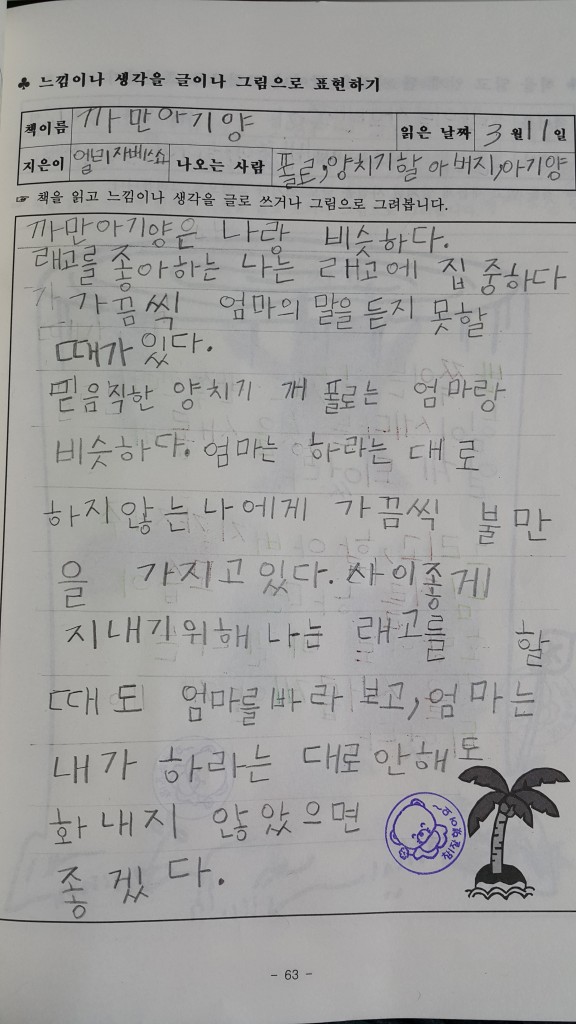 ♣ 느낌이나 생각을 글이나 그림으로 표현하기
책이름 까만아기양 읽은 날짜 3 월 11 일
지은이 엘리자베스쇼 나오는 사람 폴로,양치기할아버지,아기양
☞ 책을 읽고 느낌이나 생각을 글로 쓰거나 그림으로 그려봅니다.
까만아기양은 나랑 비슷하다.
래고를 좋아하는 나는 래고에 집중하다
가끔씩 엄마의 말을 듣지 못할
때가 있다.
믿음직한 양치기 개 폴로는 엄마랑
비슷하다. 엄마는 하라는 대로
하지않는나에게 가끔씩 불만
을 가지고있다. 사이좋게
지내기위해 나는 래고를 할
때도 엄마를바라보고, 엄마는
내가 하라는 대로안해도
화내지 않았으면
좋겠다.
- 63 -